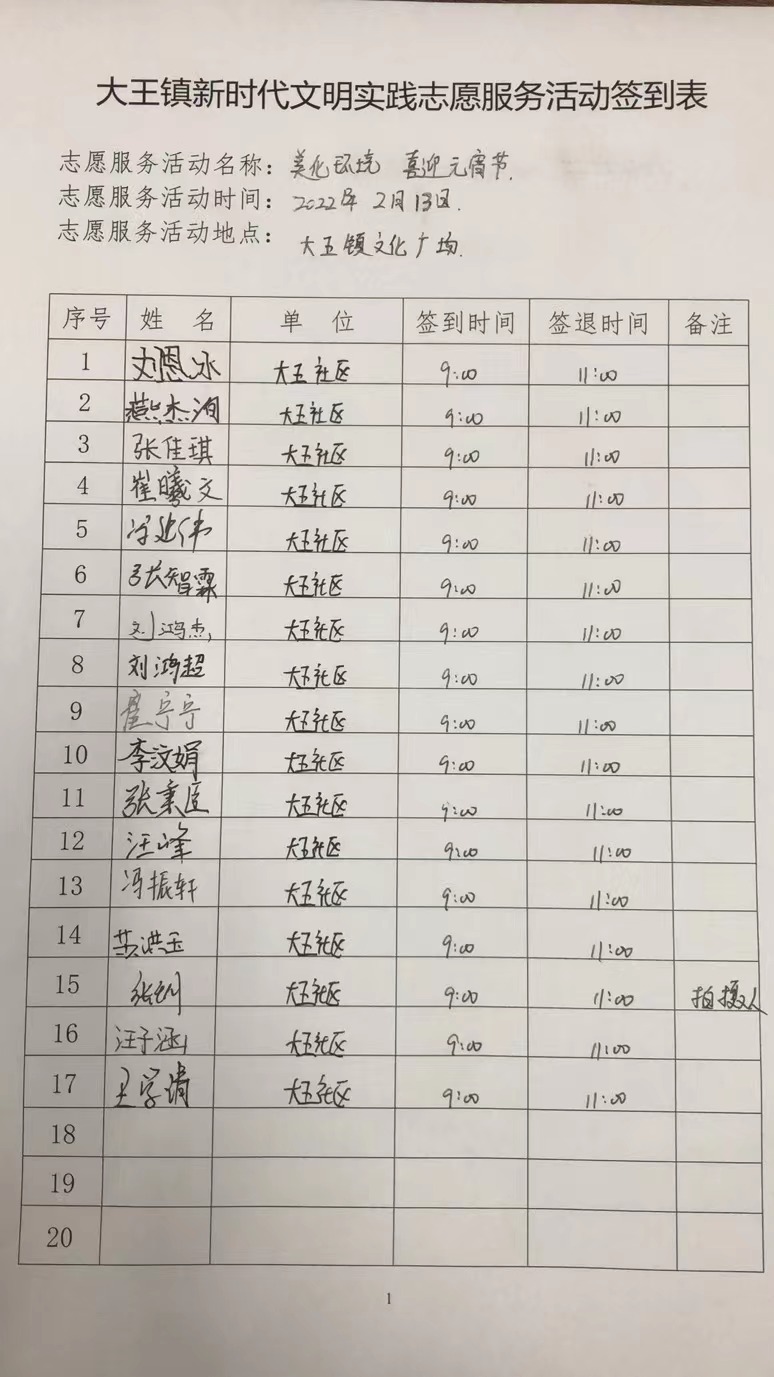 大王镇新时代文明实践志愿服务活动签到表
志愿服务活动名称：美化环境 喜迎元宵节.
志愿服务活动时间：2022年 2月13日.
志愿服务活动地点：大王镇文化广场.
序号 姓 名 单 位 签到时间 签退时间 备注
1 刘恩冰 大王社区 9:00 11:00
2 燕杰 大王社区 9:00 11:00
3 张佳琪 大王社区 9:00 11:00
4 崔曦文 大王社区 9:00 11:00
5 伟 大王社区 9:00 11:00
6 张智霖 大王社区 9:00 11:00
7 刘鸿杰 大王社区 9:00 11:00
8 刘鸿超 大王社区 9:00 11:00
9 宁宁 大王社区 9:00 11:00
10 李汶娟 大王社区 9:00 11:00
11 张秉臣 大王社区 9:00 11:00
12 汪峰 大王社区 9:00 11:00
13 冯振轩 大王社区 9:00 11:00
14 洪玉 大王社区 9:00 11:00
15 张钊 大王社区 9:00 11:00 拍摄人
16 汪子涵 大王社区 9:00 11:00
17 王学清 大王社区 9:00 11:00
18
19
20
1